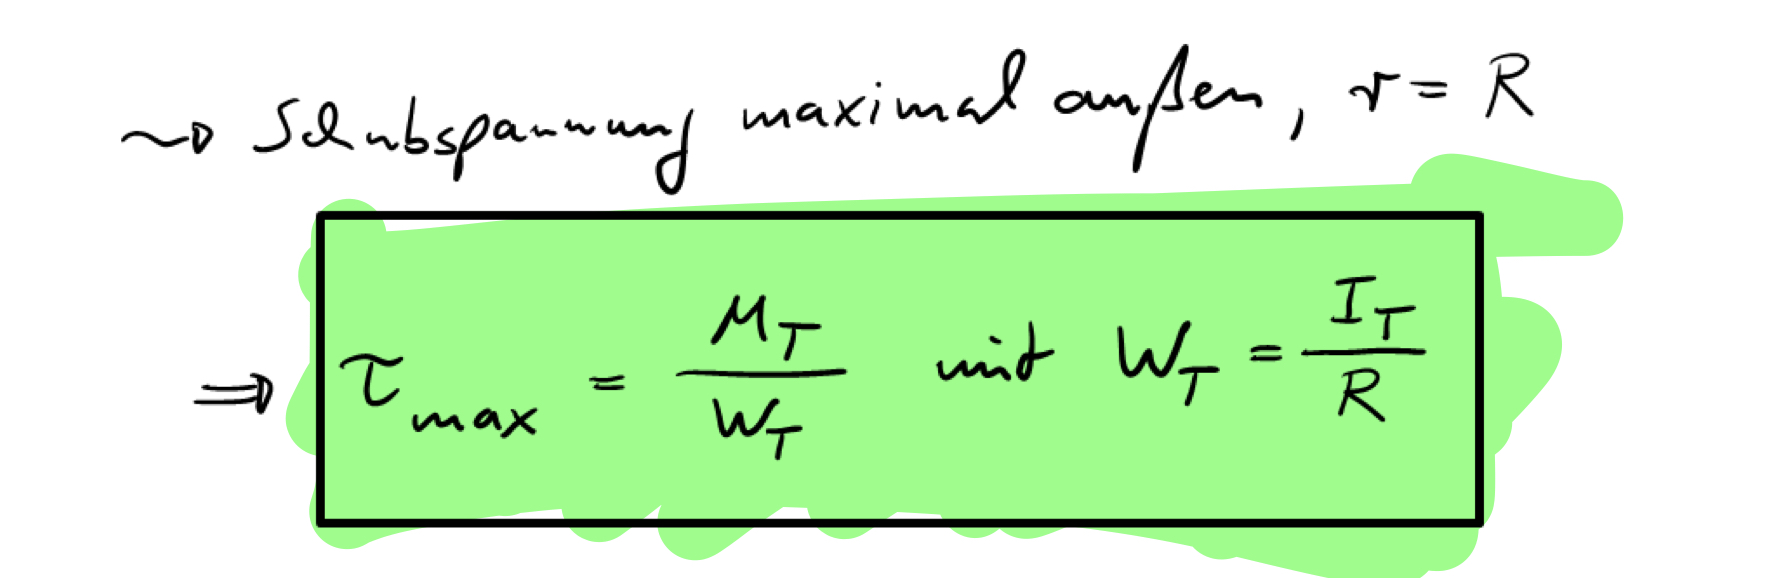 ⇝ Schubspannung maximal außen, r = R
⇒ τ_max = M_T / W_T mit W_T = I_T / R